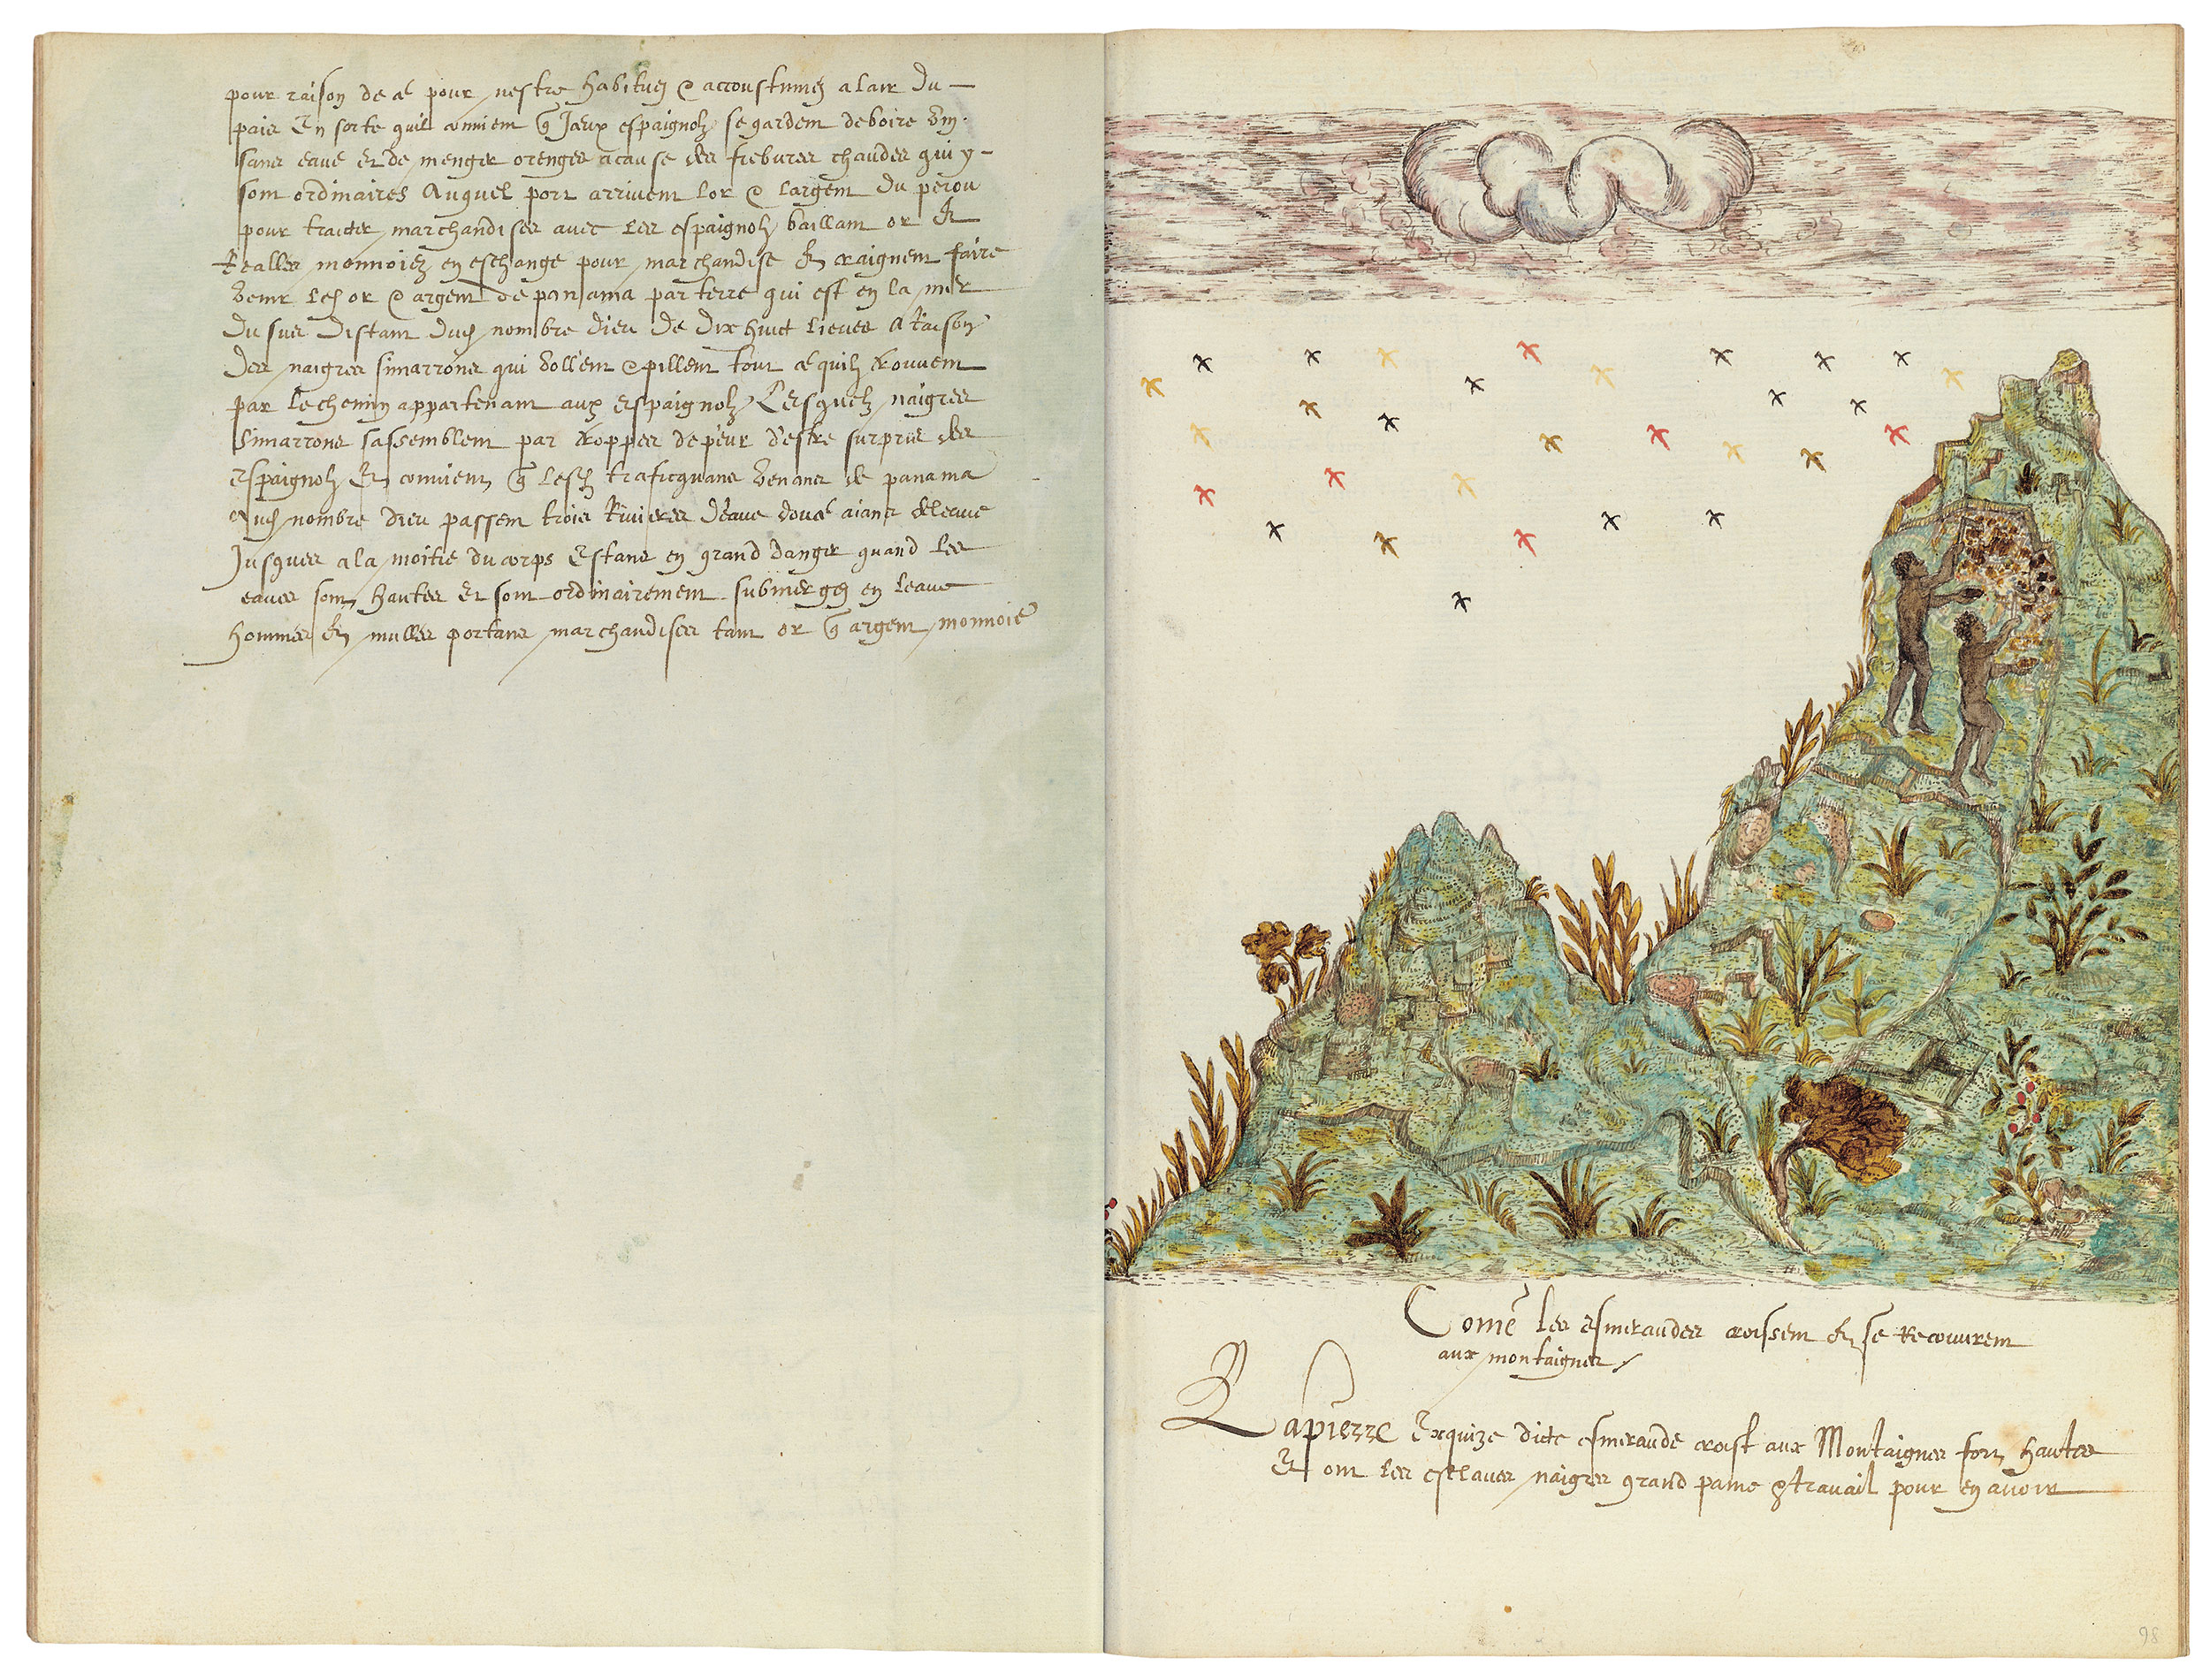 pour raison de ce pour nestre habituez & accoustumez a lair du
pais En sorte quil convient q̃ Iceux espaignolz se gardent de boire vin
sans eaue Et de menger orenges a cause des fiebvres chaudes qui y
sont ordinaires Auquel port arrivent lor & largent du perou
pour traicter marchandises avec les espaignolz baillant or Et
Realles monnoiez en eschange pour marchandise Et craignent faire
venir lesd or & argent de panama par terre qui est en la mer
du sur distant dud nombre dieu de dix huict lieues A Raison
des naigres simarrons qui vollent & pillent tout ce quilz trouvent
par le chemin appartenant aux Espaignolz Lesquelz naigres
Simarrons sassemblent par troppes de peur d'estre surpris des
Espaignolz Et convient q̃ lesd traficquans venans de panama
Aud nombre dieu passent trois Rivieres d'eaue douce aians de leaue
Jusques a la moitie du corps Estans en grand danger quand les
eaues sont hautes Et sont ordinairement submergez en leaue
hommes Et mulles portans marchandises tant or q̃ argent monnoié
Comẽ les esmeraudes croissent Et se Recouvrent
aux montaignes
La pierre Exquize dicte esmeraude croist aux Montaignes fort hautes
Et ont les esclaves naigres grand paine & travail pour en avoir
98